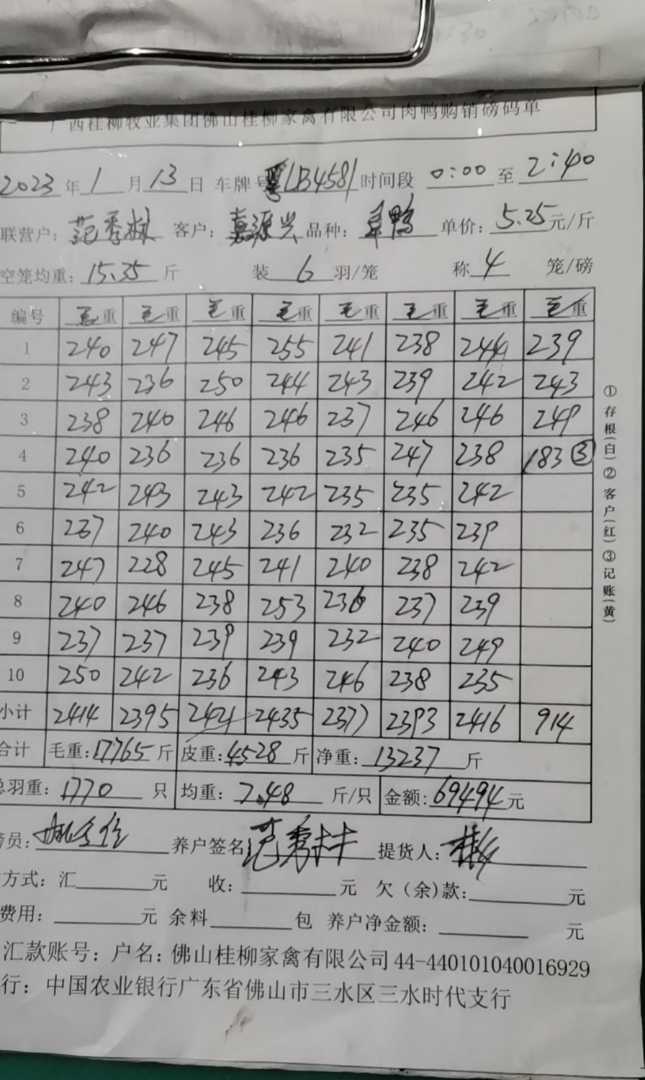 广西桂柳牧业集团佛山桂柳家禽有限公司肉鸭购销磅码单
2023年1月13日 车牌号 粤LB4581 时间段 0:00 至 2:40
联营户: 范秀林 客户: 嘉源兴 品种: 鸭 单价: 5.25元/斤
空笼均重: 15.35斤 装 6 羽/笼 称 4 笼/磅
编号 毛重 毛重 毛重 毛重 毛重 毛重 毛重 毛重
1 240 247 245 255 241 238 244 239
2 243 236 250 244 243 239 242 243
3 238 240 246 246 237 246 246 249
4 240 236 236 236 235 247 238 183 ③
5 242 243 243 242 235 235 242
6 237 240 243 236 232 235 239
7 247 228 245 241 240 238 242
8 240 246 238 253 236 237 239
9 237 237 239 239 232 240 249
10 250 242 236 243 246 238 235
小计 2414 2395 2421 2435 2377 2393 2416 914
合计 毛重: 17765 斤 皮重: 4528 斤 净重: 13237 斤
总羽重: 1770 只 均重: 7.48 斤/只 金额: 69494元
员: 养户签名 范秀林 提货人:
方式: 汇 元 收: 元 欠(余)款: 元
费用: 元 余料 包 养户净金额: 元
汇款账号: 户名: 佛山桂柳家禽有限公司 44-440101040016929
行: 中国农业银行广东省佛山市三水区三水时代支行
①存根(白)②客户(红)③记账(黄)